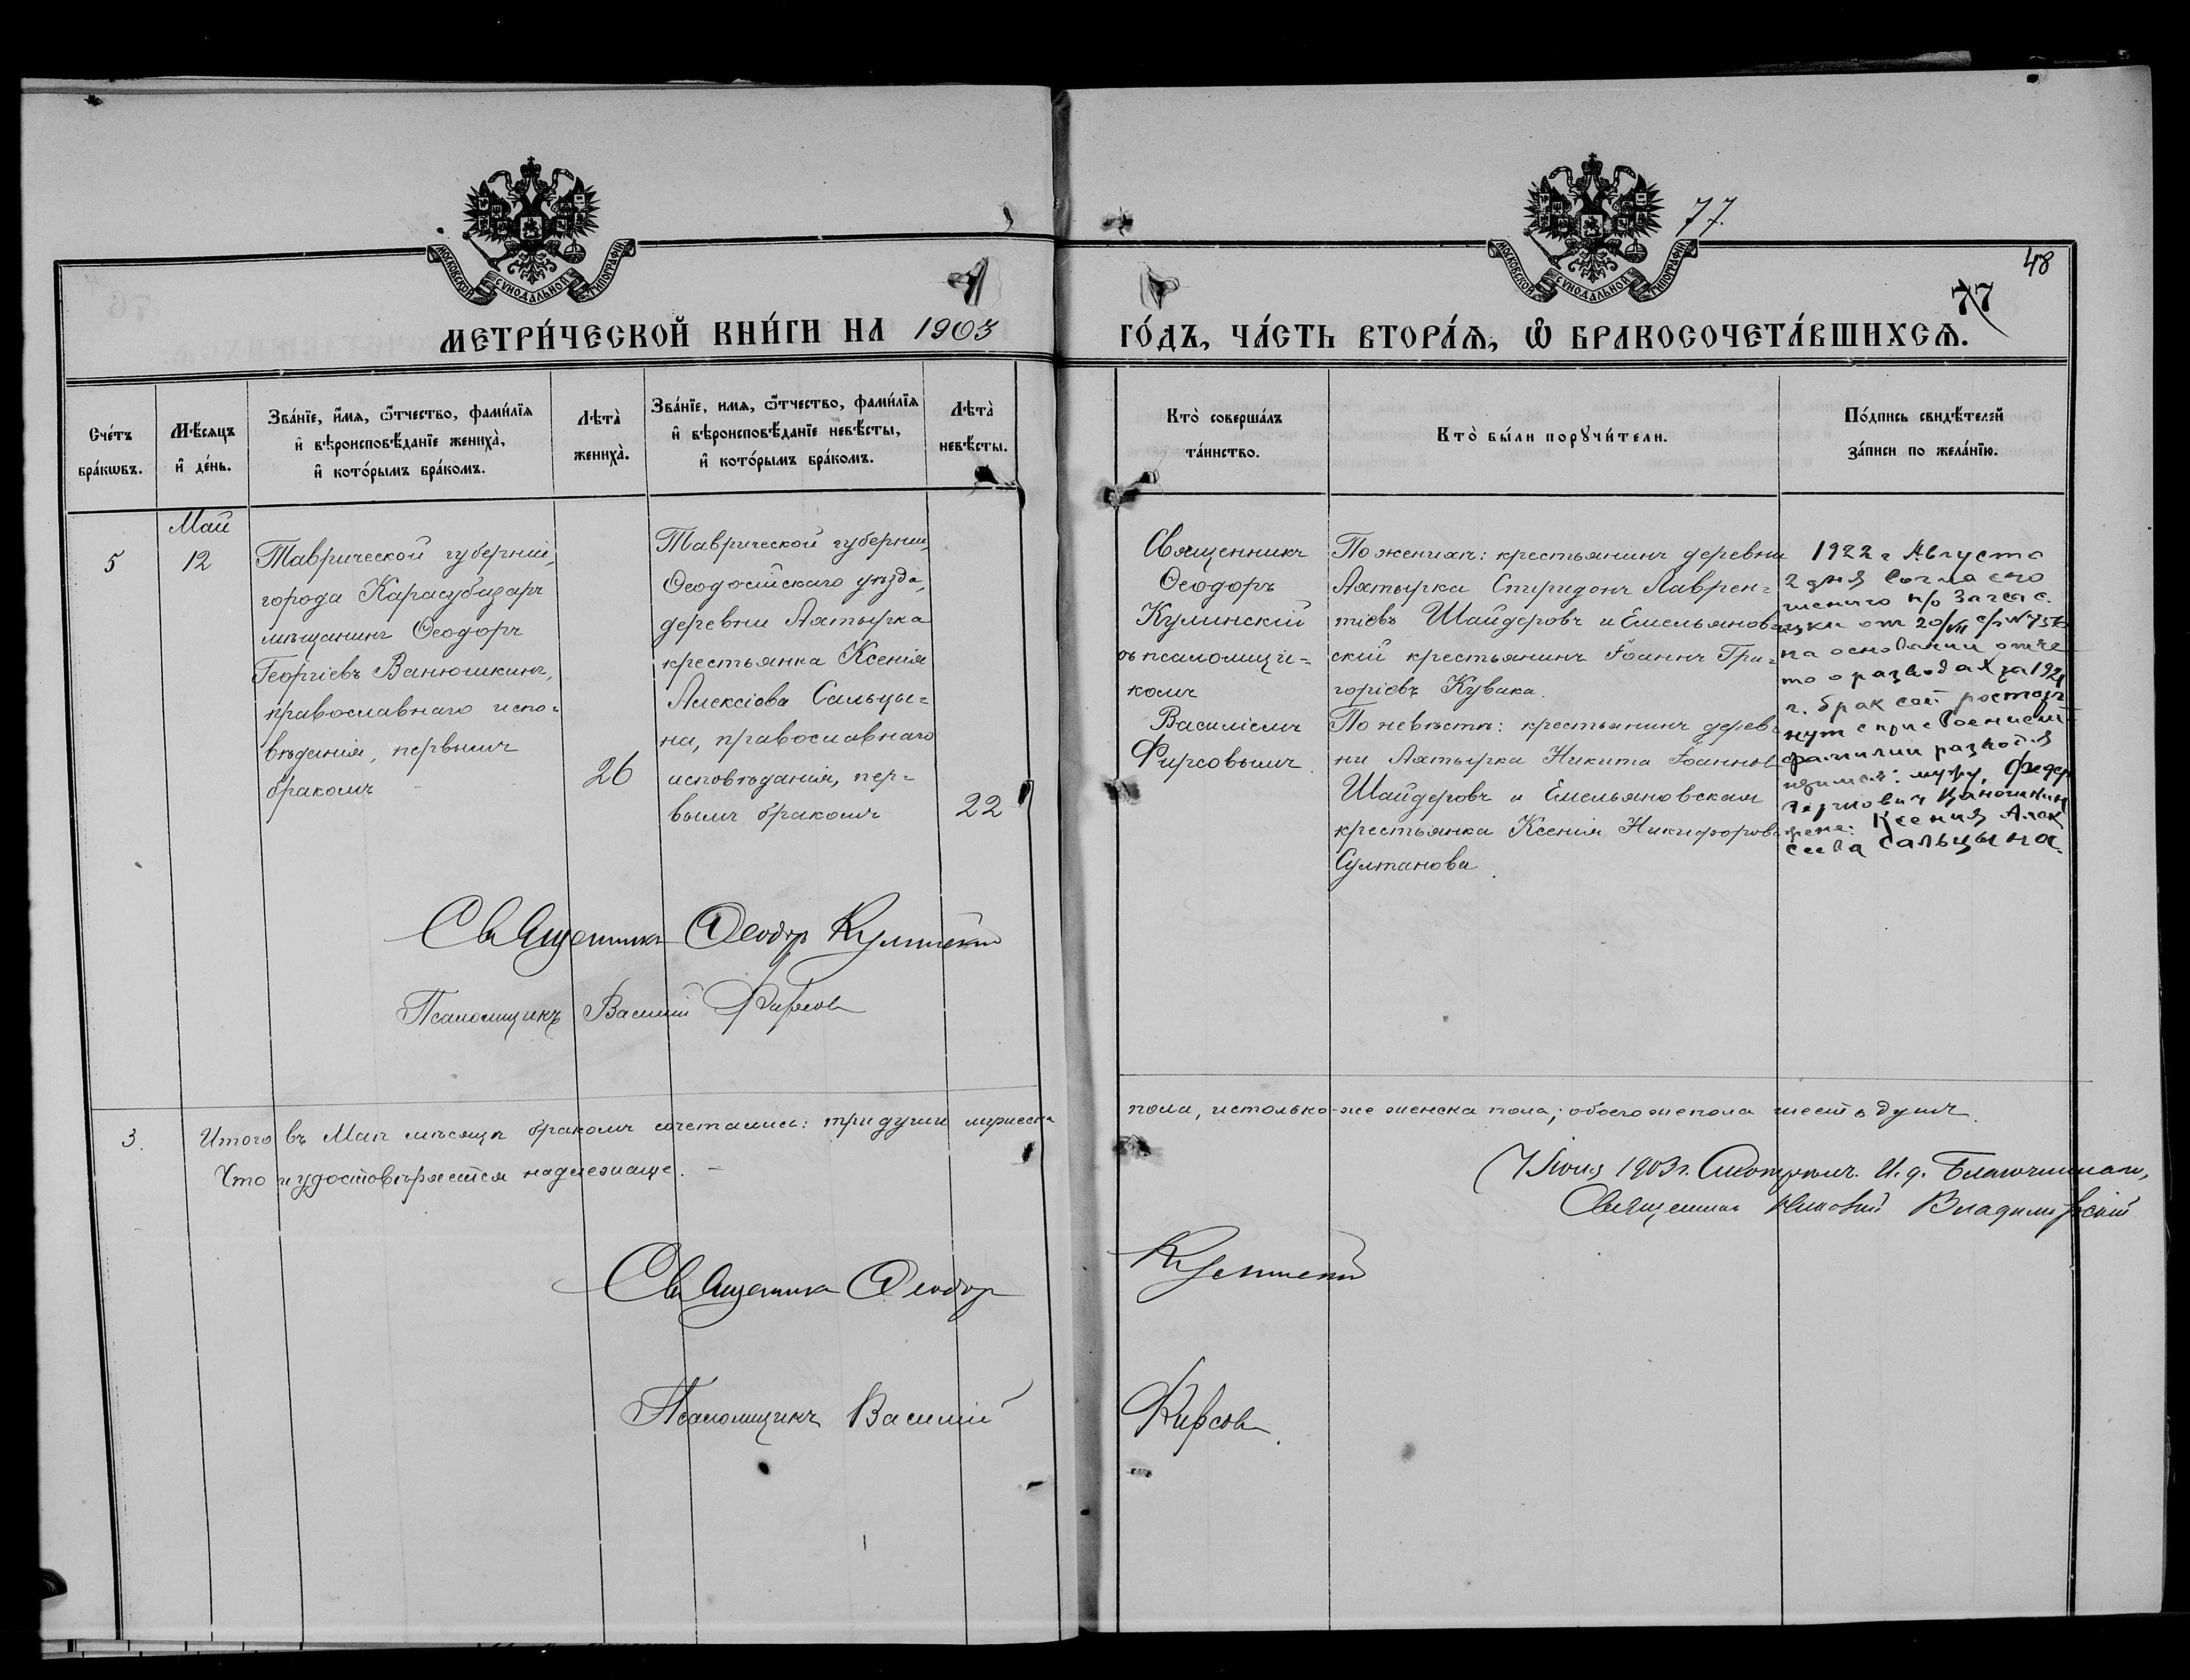 77.
48
77
МОСКОВСКОЙ СѴНОДАЛЬНОЙ ТИПОГРАФІИ
МОСКОВСКОЙ СѴНОДАЛЬНОЙ ТИПОГРАФІИ
МЕТРИ́ЧЕСКОЙ КНИ́ГИ НА 1903 ГО́ДЪ, ЧА́СТЬ ВТОРА́Ѧ, Ѽ БРАКОСОЧЕТА́ВШИХСѦ.
Сче́тъ
бра́кѡвъ.
Мѣ́сяцъ
и҆ де́нь.
Зва́нїе, и҆́мѧ, ѻ҆́тчество, фами́лїѧ
и҆ вѣроисповѣ́данїе жениха̀,
и҆ кото́рымъ бра́комъ.
Лѣта̀
жениха̀.
Зва́нїе, имѧ, ѻ҆́тчество, фами́лїѧ
и҆ вѣроисповѣ́данїе невѣ́сты,
и҆ кото́рымъ бра́комъ.
Лѣта̀
невѣ́сты.
Кто̀ соверша́лъ
та́инство.
Кто̀ бы́ли порꙋчи́тели.
По́дпись свидѣ́телей
за́писи по жела́нїю.
5
Май
12
Таврической губерніи,
города Карасубазаръ
мѣщанинъ Ѳеодоръ
Георгіевъ Ванюшкинъ,
православнаго испо-
вѣданія, первымъ
бракомъ
26
Таврической губерніи,
Ѳеодосійскаго уѣзда,
деревни Ахтырка
крестьянка Ксенія
Алексіева Сальцы-
на, православнаго
исповѣданія, пер-
вымъ бракомъ
22
Священникъ
Ѳеодоръ
Кулинскій
съ псаломщи-
комъ
Василіемъ
Фирсовымъ
По женихѣ: крестьянинъ деревни
Ахтырка Спиридонъ Лаврен-
тіевъ Шайдеровъ и Емельянов
скій крестьянинъ Іоаннъ Гри-
горіевъ Кувака.
По невѣстѣ: крестьянинъ дерев-
ни Ахтырка Никита Іоаннов
Шайдеровъ и Емельяновская
крестьянка Ксенія Никифорова
Султанова.
1922 г Августа
2 дня Согласно
п/о Загса с.
от 20/VII с/г №
на основании отче
та о разводах за 1921
г. брак сей расторг
нут с присвоением
фамилии
мужу, Федор
Ванюшкин
жене: Ксения Алек
сеева Сальцына.
Священникъ Ѳеодоръ Кулинскій
Псаломщикъ Василій Фирсовъ
3.
Итого въ Маѣ мѣсяцѣ бракомъ сочетались: три души мужеска пола, и столько-же женска пола; обоего же пола шесть душъ.
Что и удостовѣряется надлежаще.
7 Іюня 1903 г. Смотрѣлъ. И. д. Благочиннаго,
Священникъ Владимірскій
Священникъ Ѳеодоръ Кулинскій
Псаломщикъ Василій Фирсовъ.